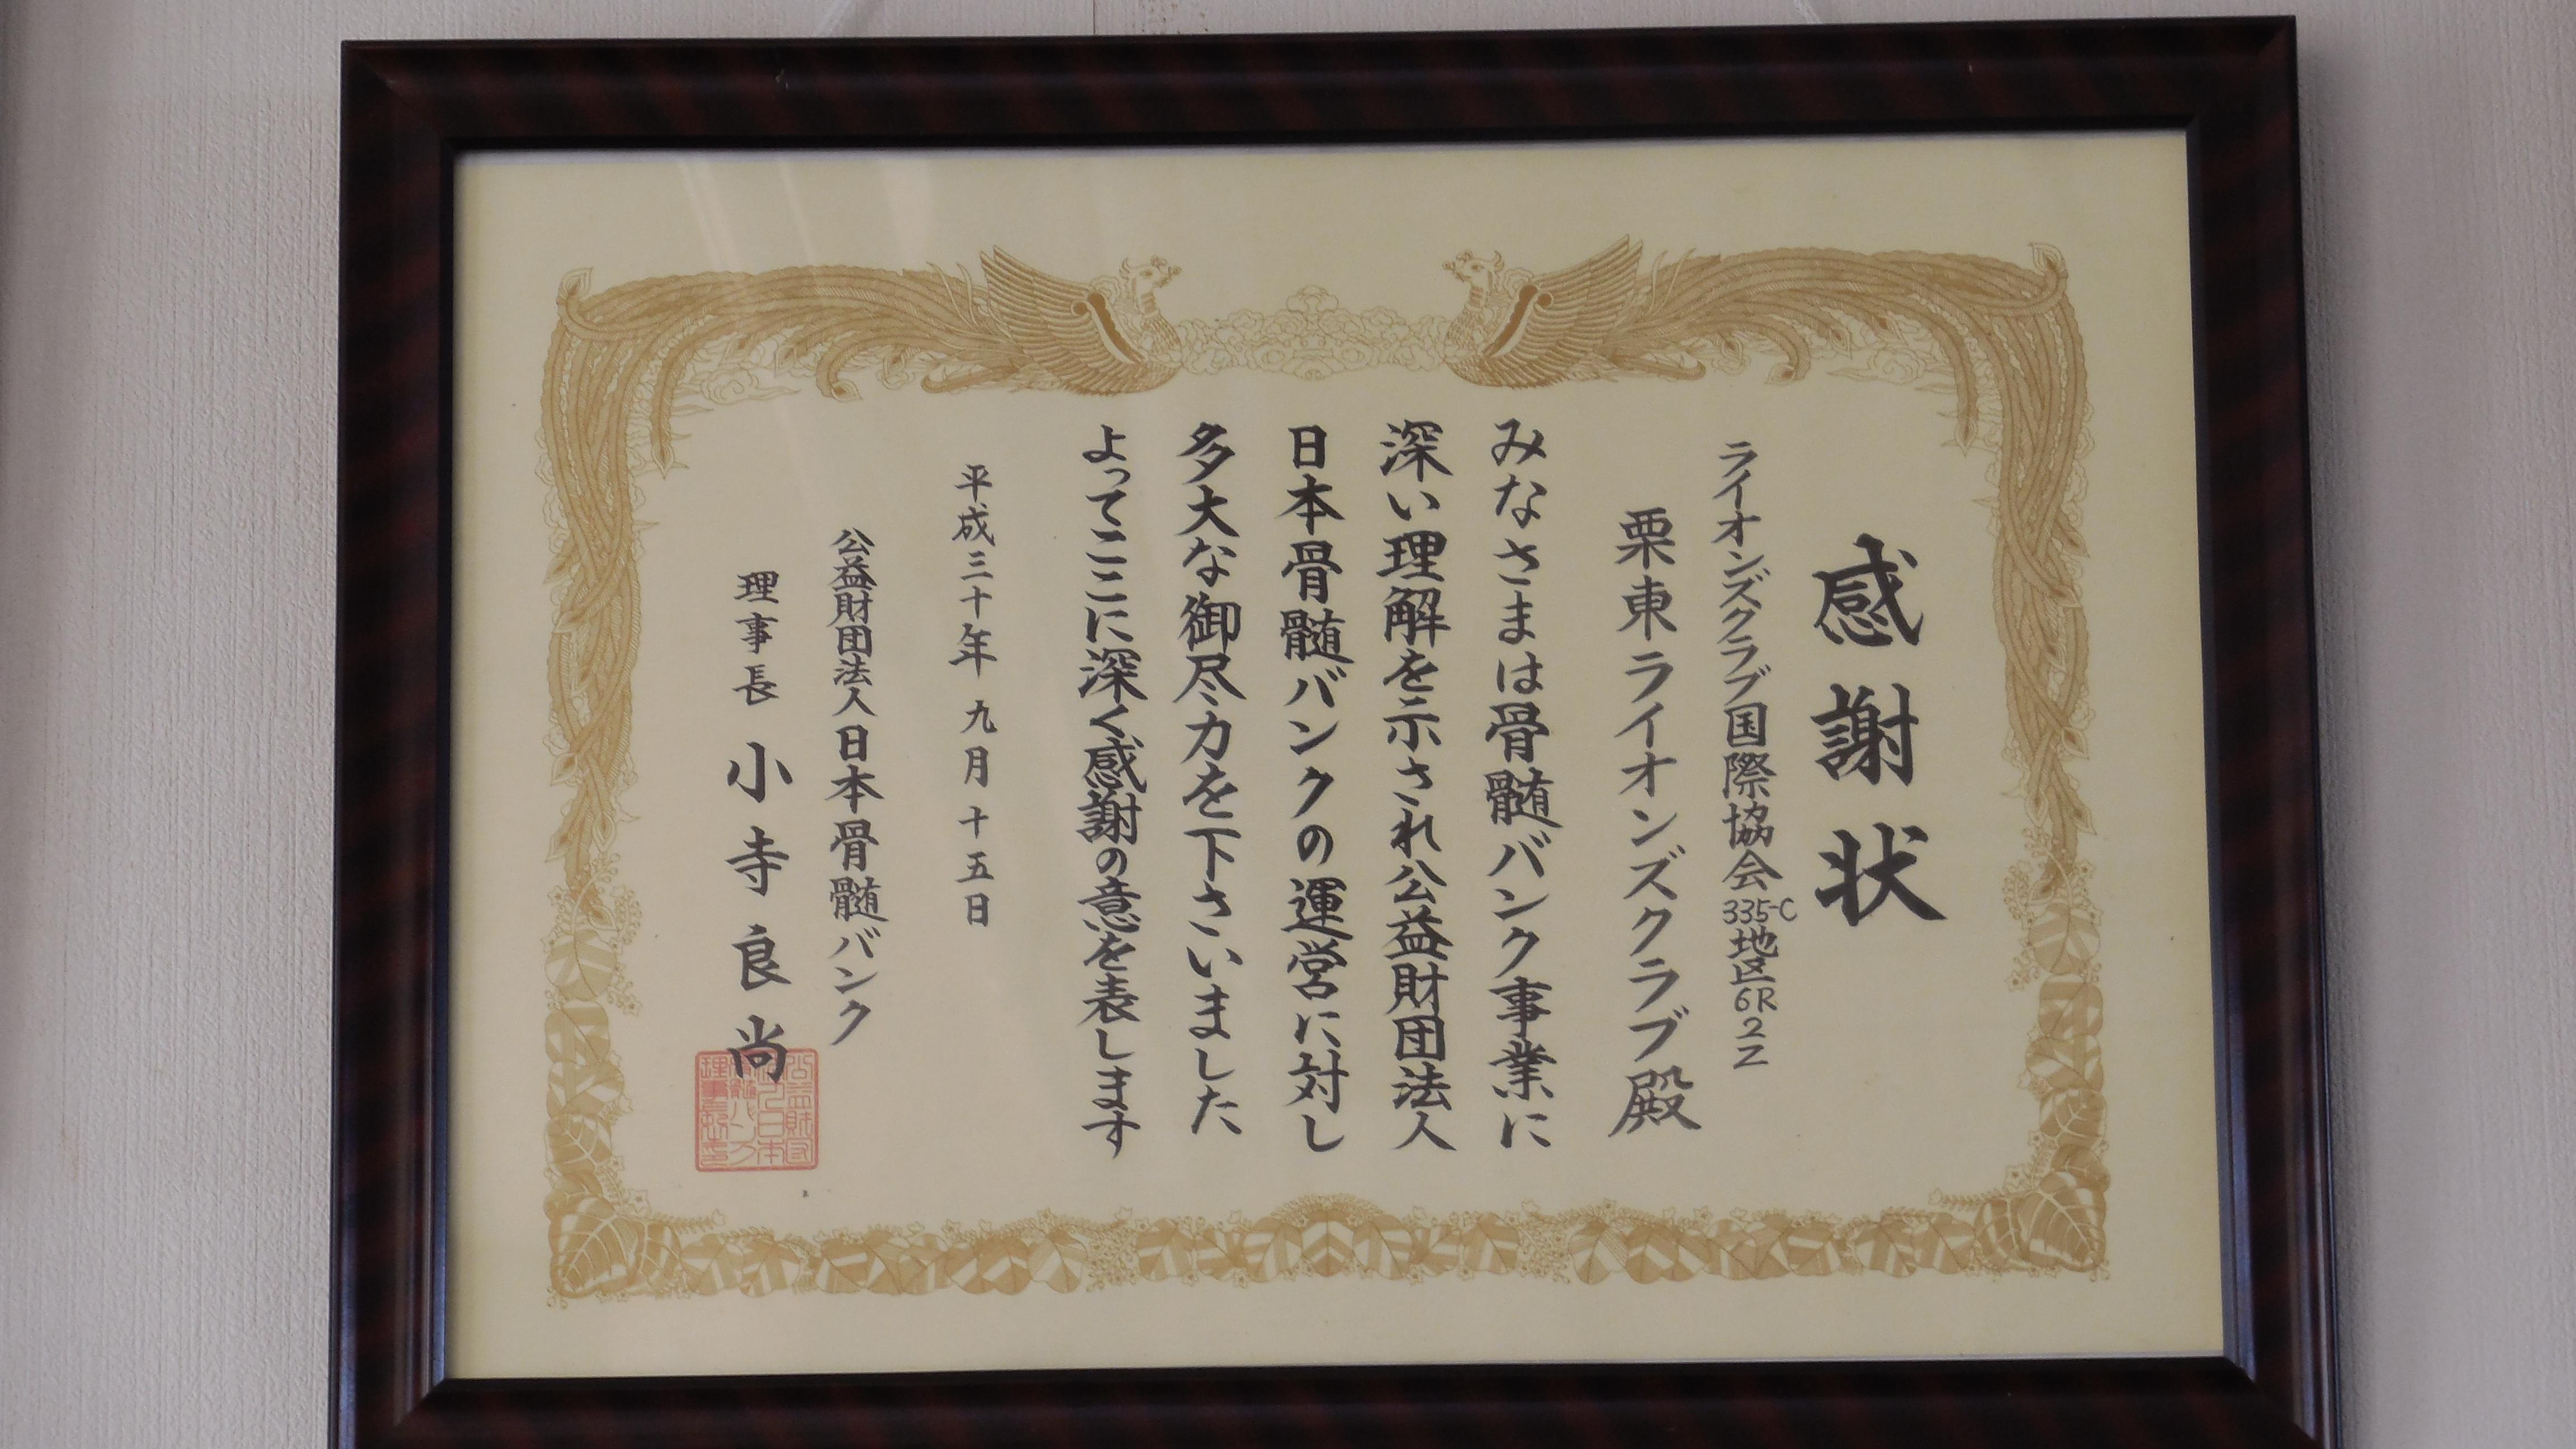 感謝状
ライオンズクラブ国際協会335-C地区6R2Z
栗東ライオンズクラブ殿
みなさまは骨髄バンク事業に
深い理解を示され公益財団法人
日本骨髄バンクの運営に対し
多大な御尽力を下さいました
よってここに深く感謝の意を表します
平成三十年九月十五日
公益財団法人日本骨髄バンク
理事長 小寺良尚